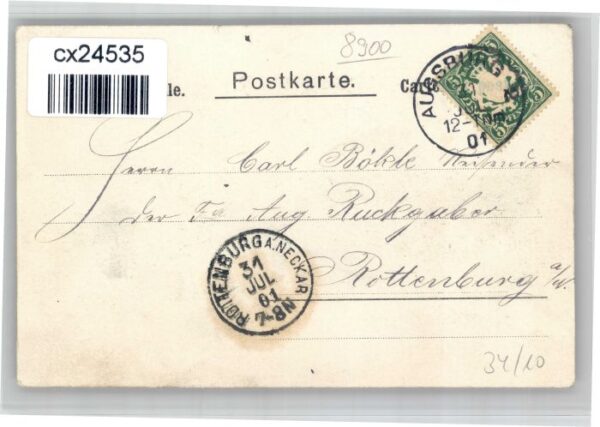 cx24535
8900
le. Postkarte. Car
AUGSBURG
31
JUL
12-1 Nm
01
5
Herrn Carl Bökle Reisender
der Fa Aug. Ruckgaber
Rottenburg a/N.
ROTTENBURG A. NECKAR
31
JUL
01
7-8N
34/10